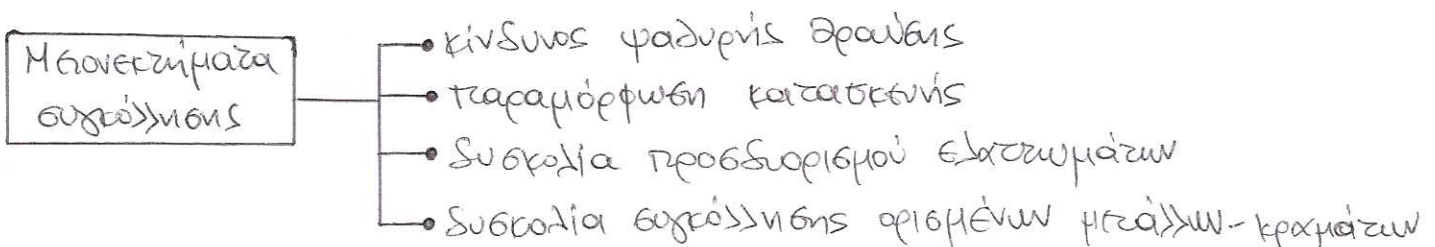 Μειονεκτήματα
συγκόλλησης
κίνδυνος ψαθυρής θραύσης
παραμόρφωση κατασκευής
δυσκολία προσδιορισμού ελαττωμάτων
δυσκολία συγκόλλησης ορισμένων μετάλλων-κραμάτων